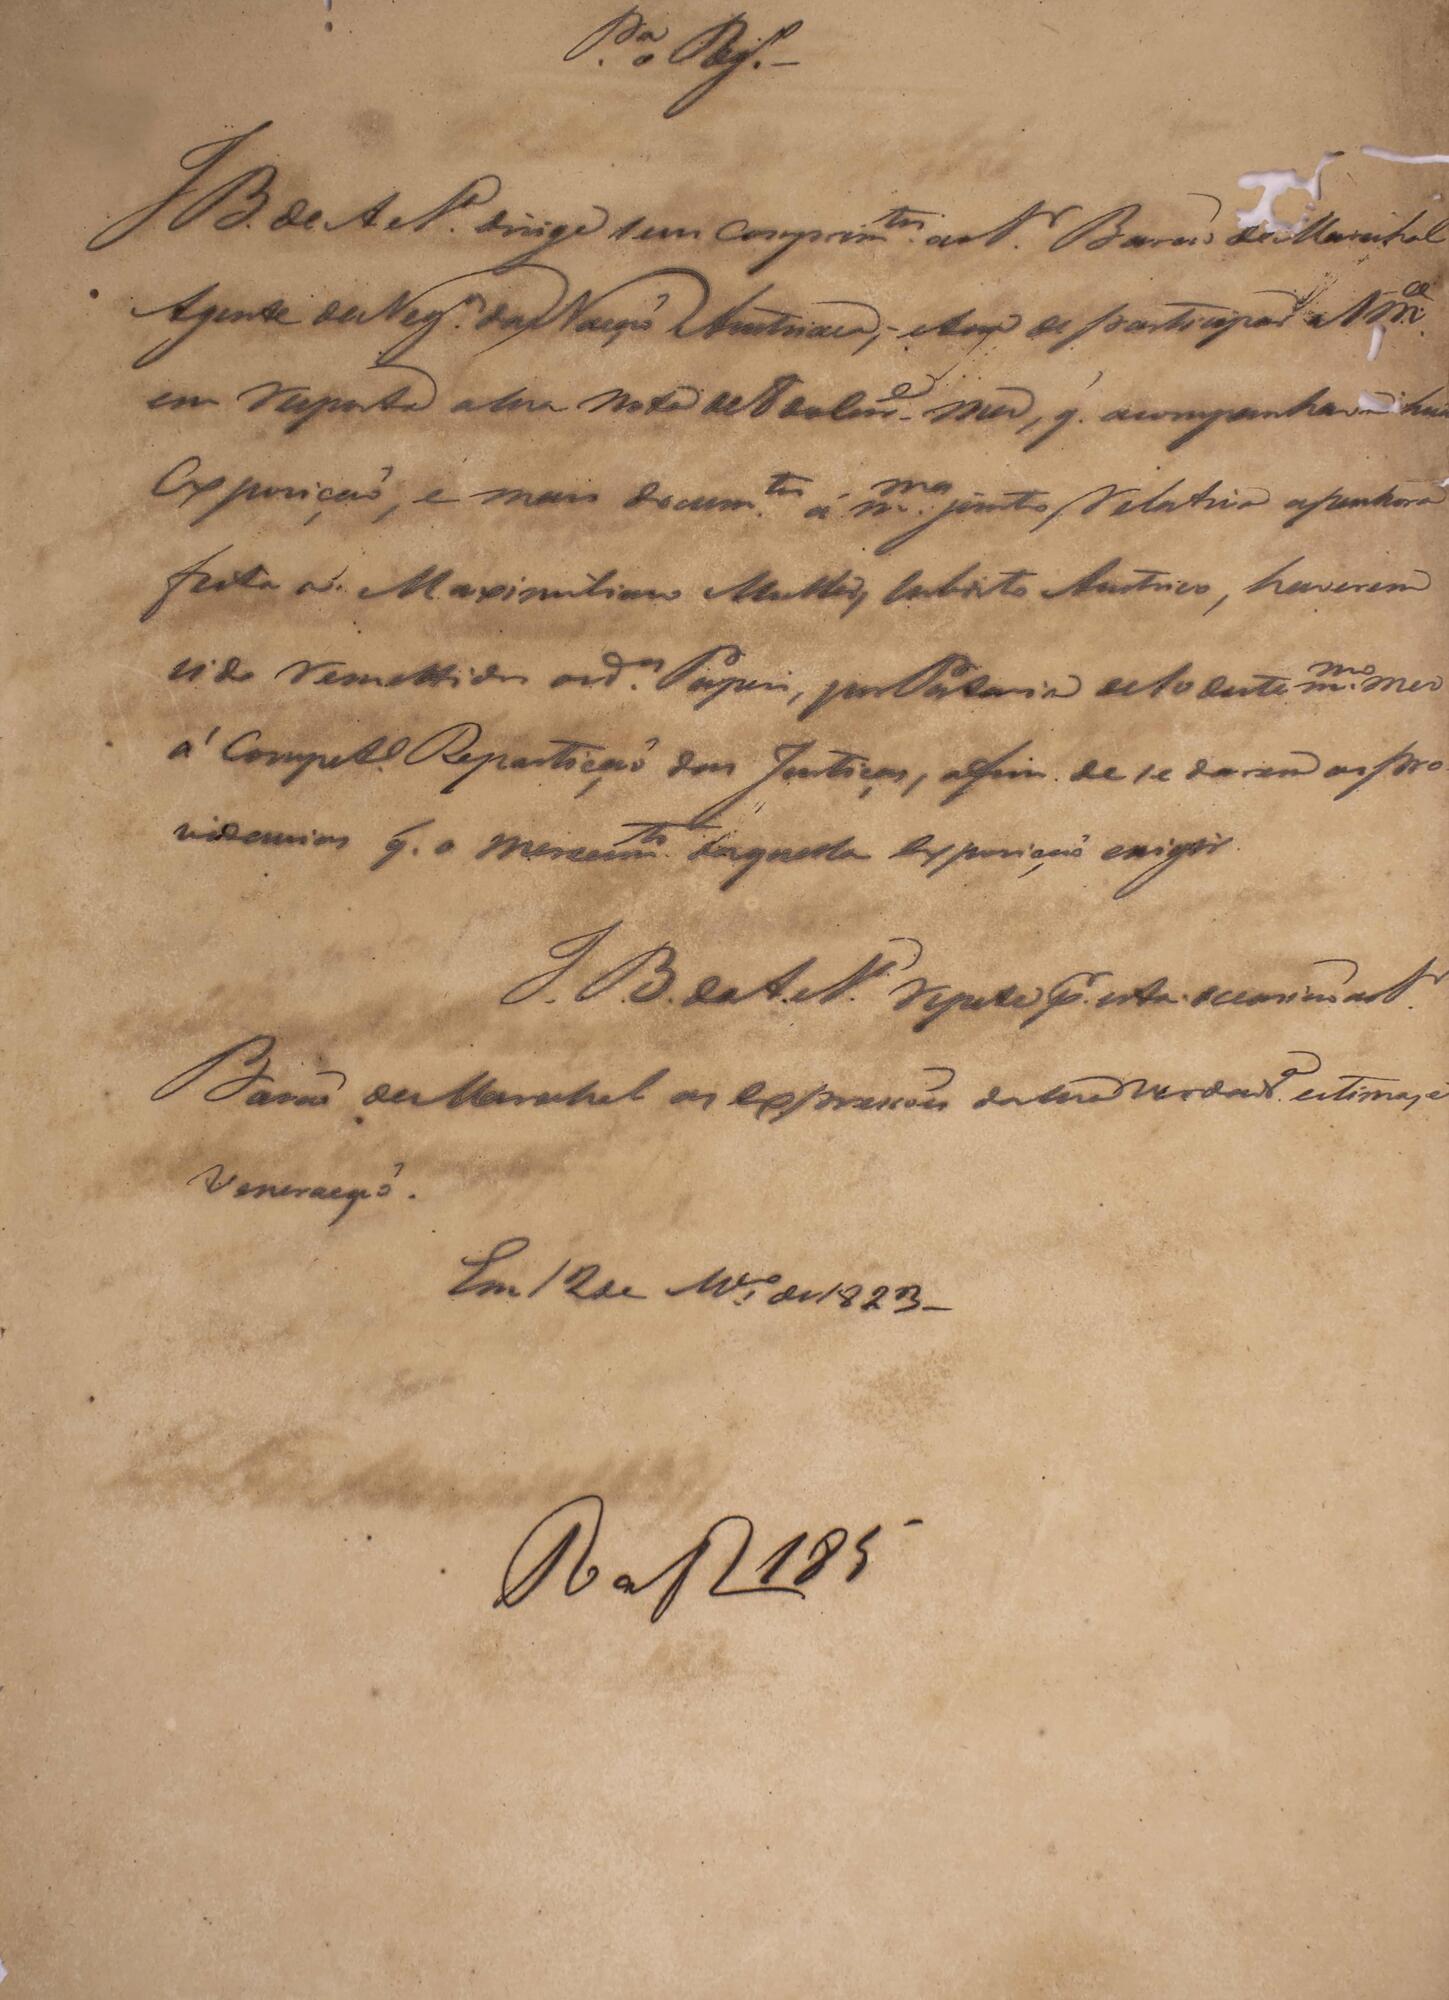 P.ª o Reg.º —
J B. de A e N.ª dirige seus comprim.tos ao S.r Barão de Mareschal
Agente de Neg.os da Nação Austriaca, e tem de participar a S. M.ce
em resposta a sua nota de 8 do corr.e mez, q. acompanhava hua
Exposição, e mais docum.tos á m.ma juntos, relativa a penhora
feita a Maximiliano Muller, subdito Austriaco, haverem
sido remettidos os d.os Papeis, por Portaria de 10 deste m.mo mez
á Compet.e Repartição das Justiças, afim de se darem as pro-
videncias q. o merecim.to daquella exposição exigir.
J. B. da A. N.ª repete p.r esta occasião ao S.r
Barão de Mareschal as expressões da sua verdad.ª estima, e
veneração.
Em 12 de M.ço de 1823 —
R a f 185